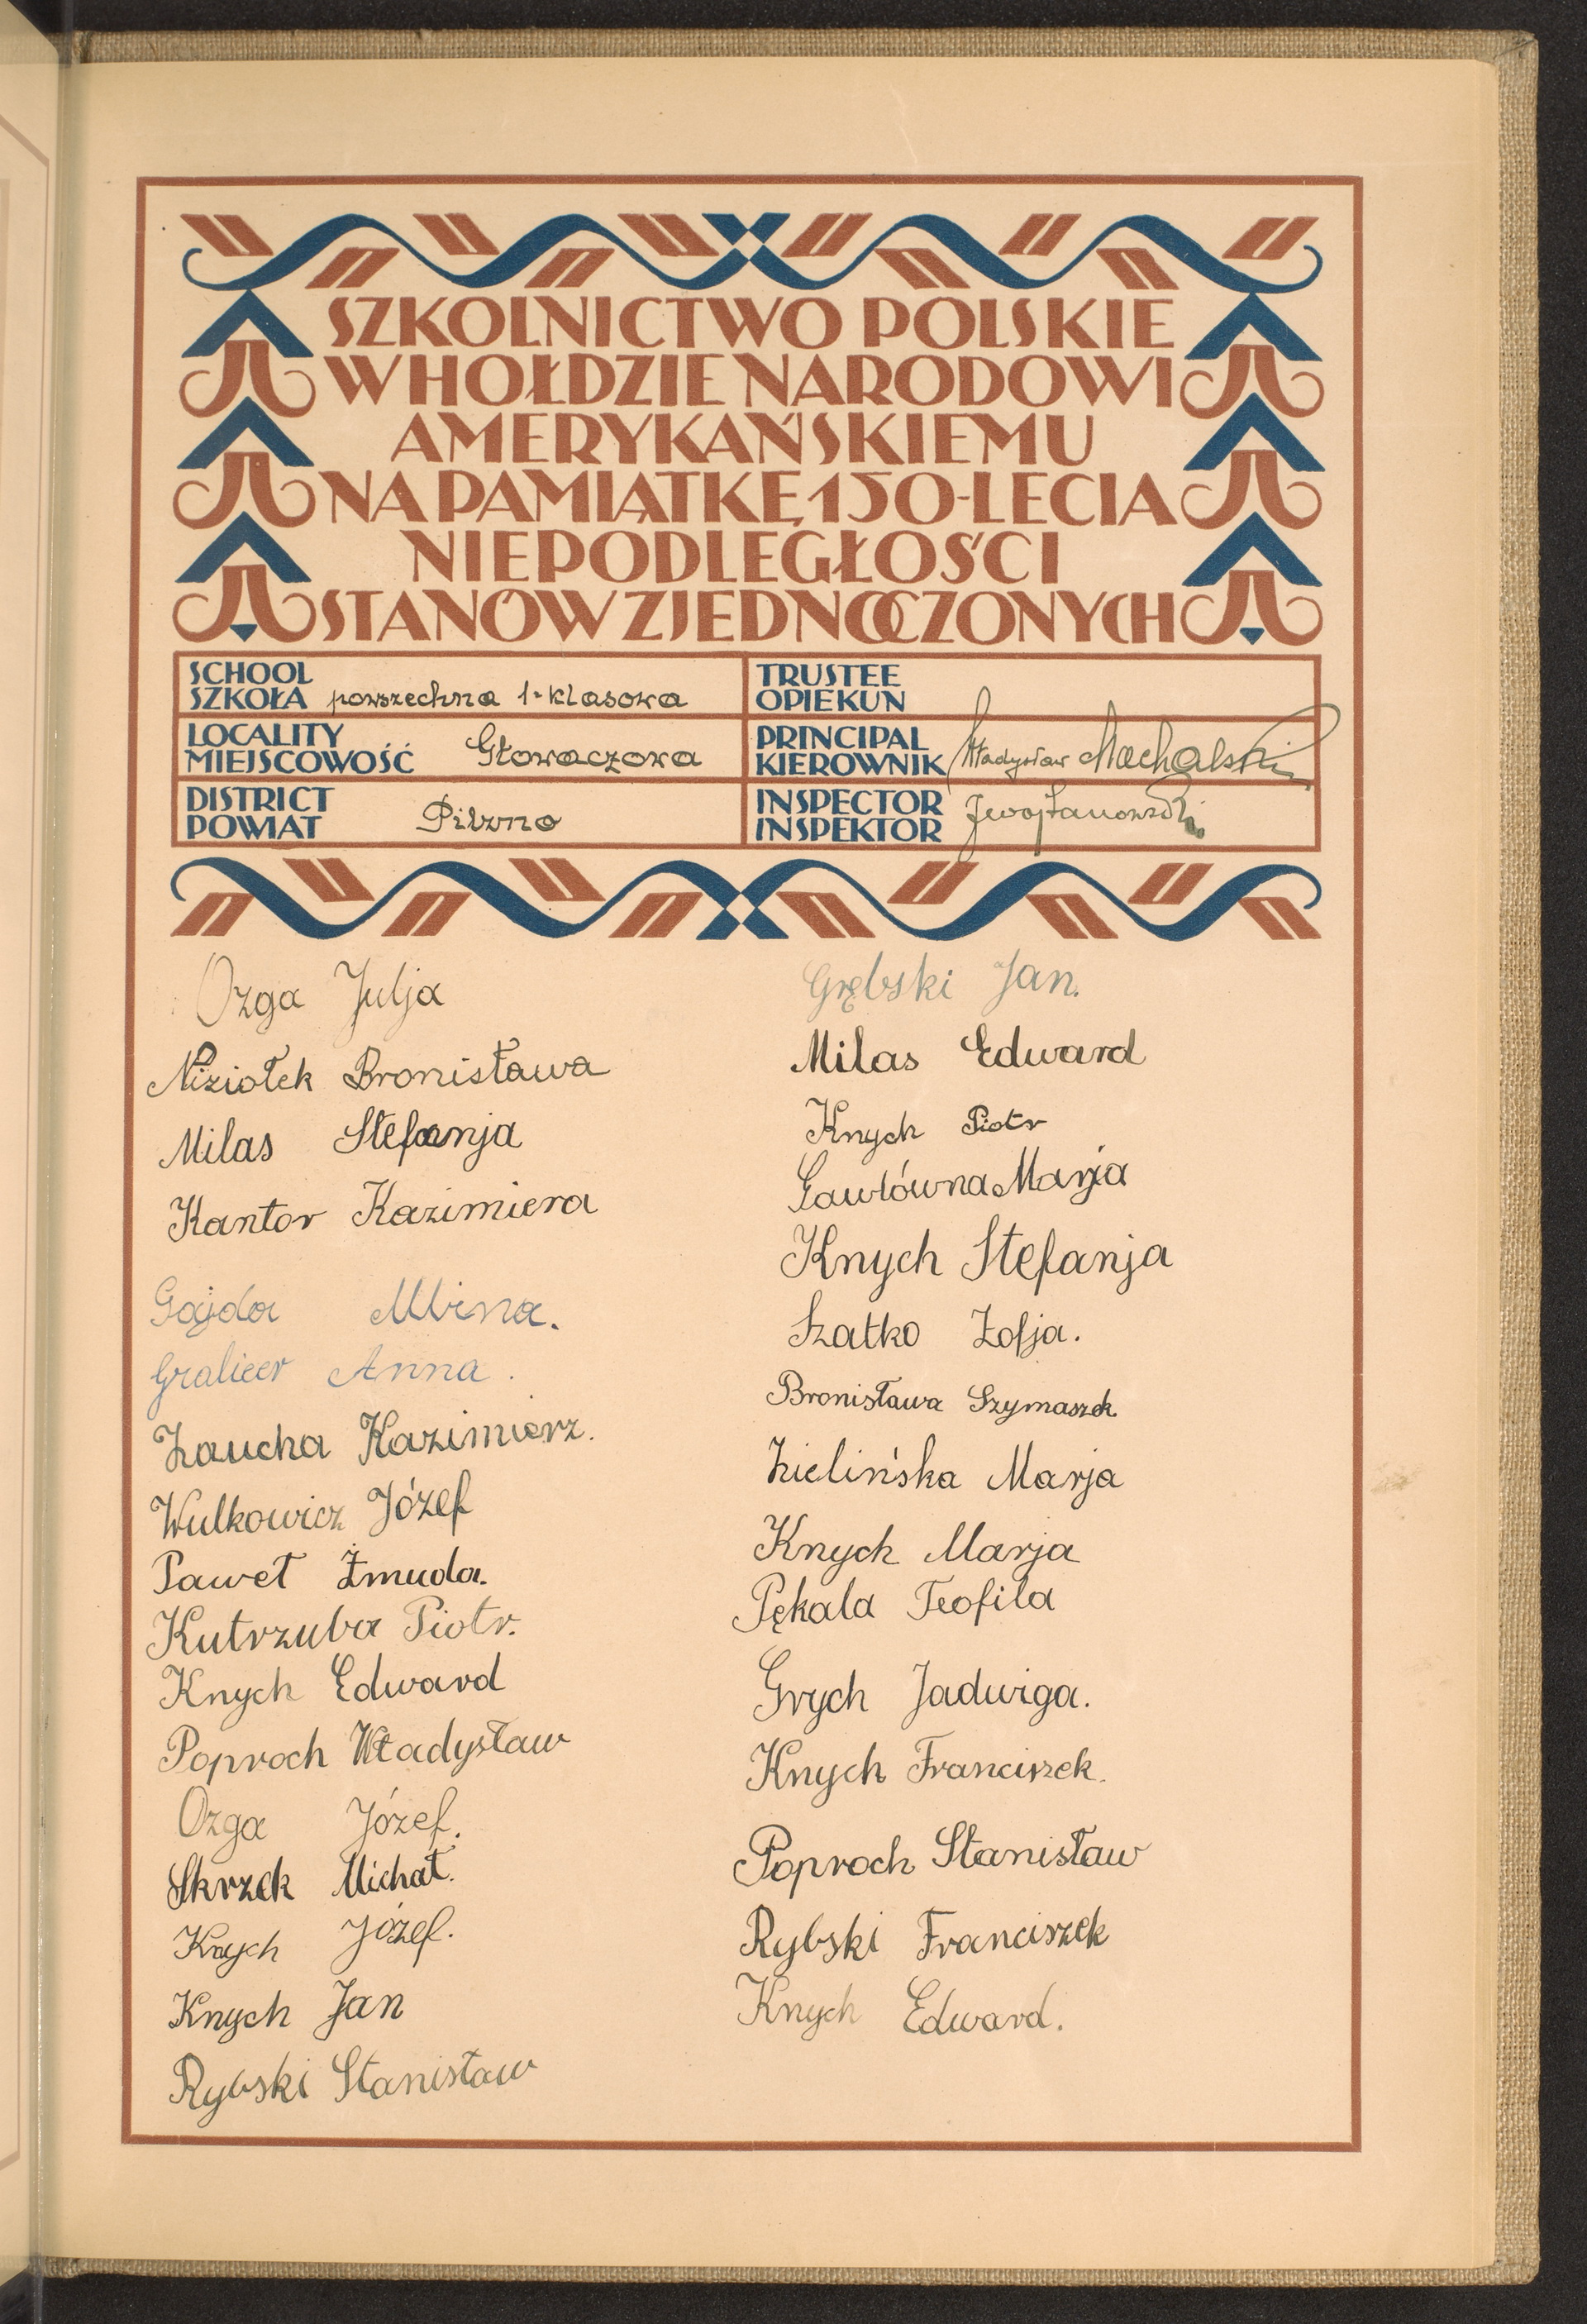 SZKOLNICTWO POLSKIE
W HOŁDZIE NARODOWI
AMERYKAŃSKIEMU
NA PAMIĄTKĘ 150-LECIA
NIEPODLEGŁOŚCI
STANÓW ZJEDNOCZONYCH
SCHOOL
SZKOŁA powszechna 1-klasowa
TRUSTEE
OPIEKUN
LOCALITY
MIEJSCOWOŚĆ Głowaczowa
PRINCIPAL
KIEROWNIK Władysław Machalski
DISTRICT
POWIAT Pilzno
INSPECTOR
INSPEKTOR
Ozga Julja
Niziołek Bronisława
Milas Stefanja
Kantor Kazimiera
Gajda
Anna.
Zaucha Kazimierz.
Wulkowicz Józef
Paweł Żmuda.
Kutrzuba Piotr.
Knych Edward
Poproch Władysław
Ozga Józef.
Skrzek Michał.
Knych Józef.
Knych Jan
Rybski Stanisław
Grębski Jan.
Milas Edward
Knych Piotr
Gawłówna Marja
Knych Stefanja
Szatko Zofja.
Bronisława Szymaszek
Zielińska Marja
Knych Marja
Pękala Teofila
Grych Jadwiga.
Knych Franciszek.
Poproch Stanisław
Rybski Franciszek
Knych Edward.